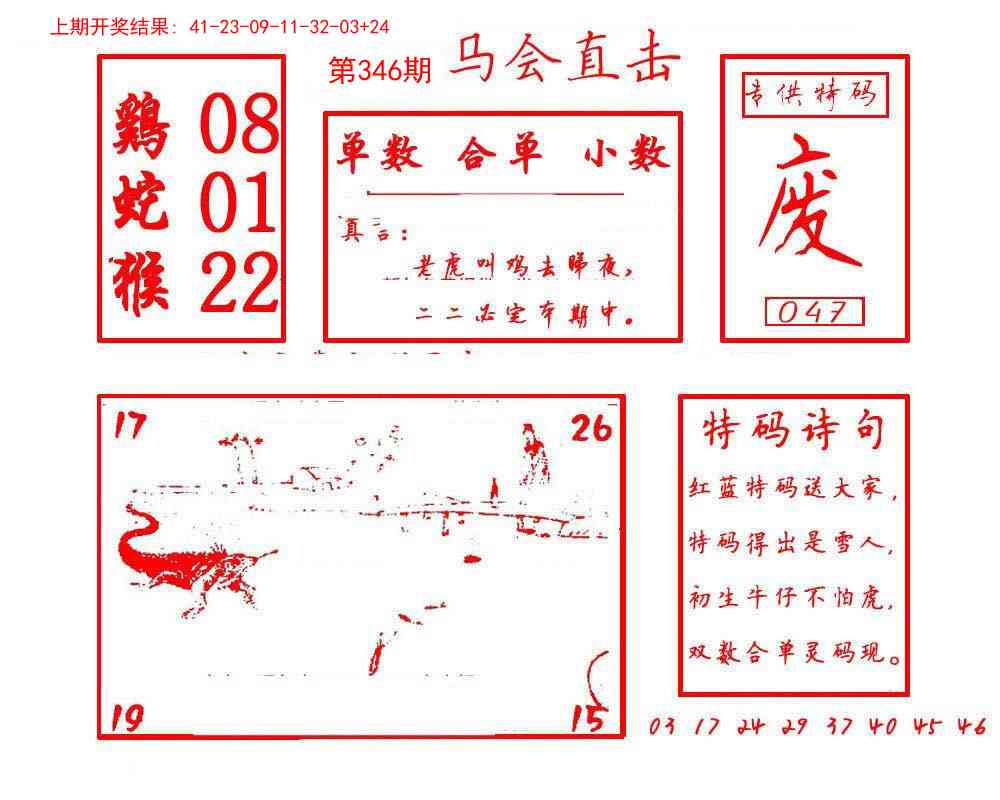 上期开奖结果: 41-23-09-11-32-03+24
第346期 马会直击
鷄 08
蛇 01
猴 22
单数 合单 小数
真言：
老虎叫鸡去睇夜，
二二必定在期中。
专供特码
废
047
17 26
19 15
特码诗句
红蓝特码送大家，
特码得出是雪人，
初生牛仔不怕虎，
双数合单灵码现。
03 17 24 29 37 40 45 46